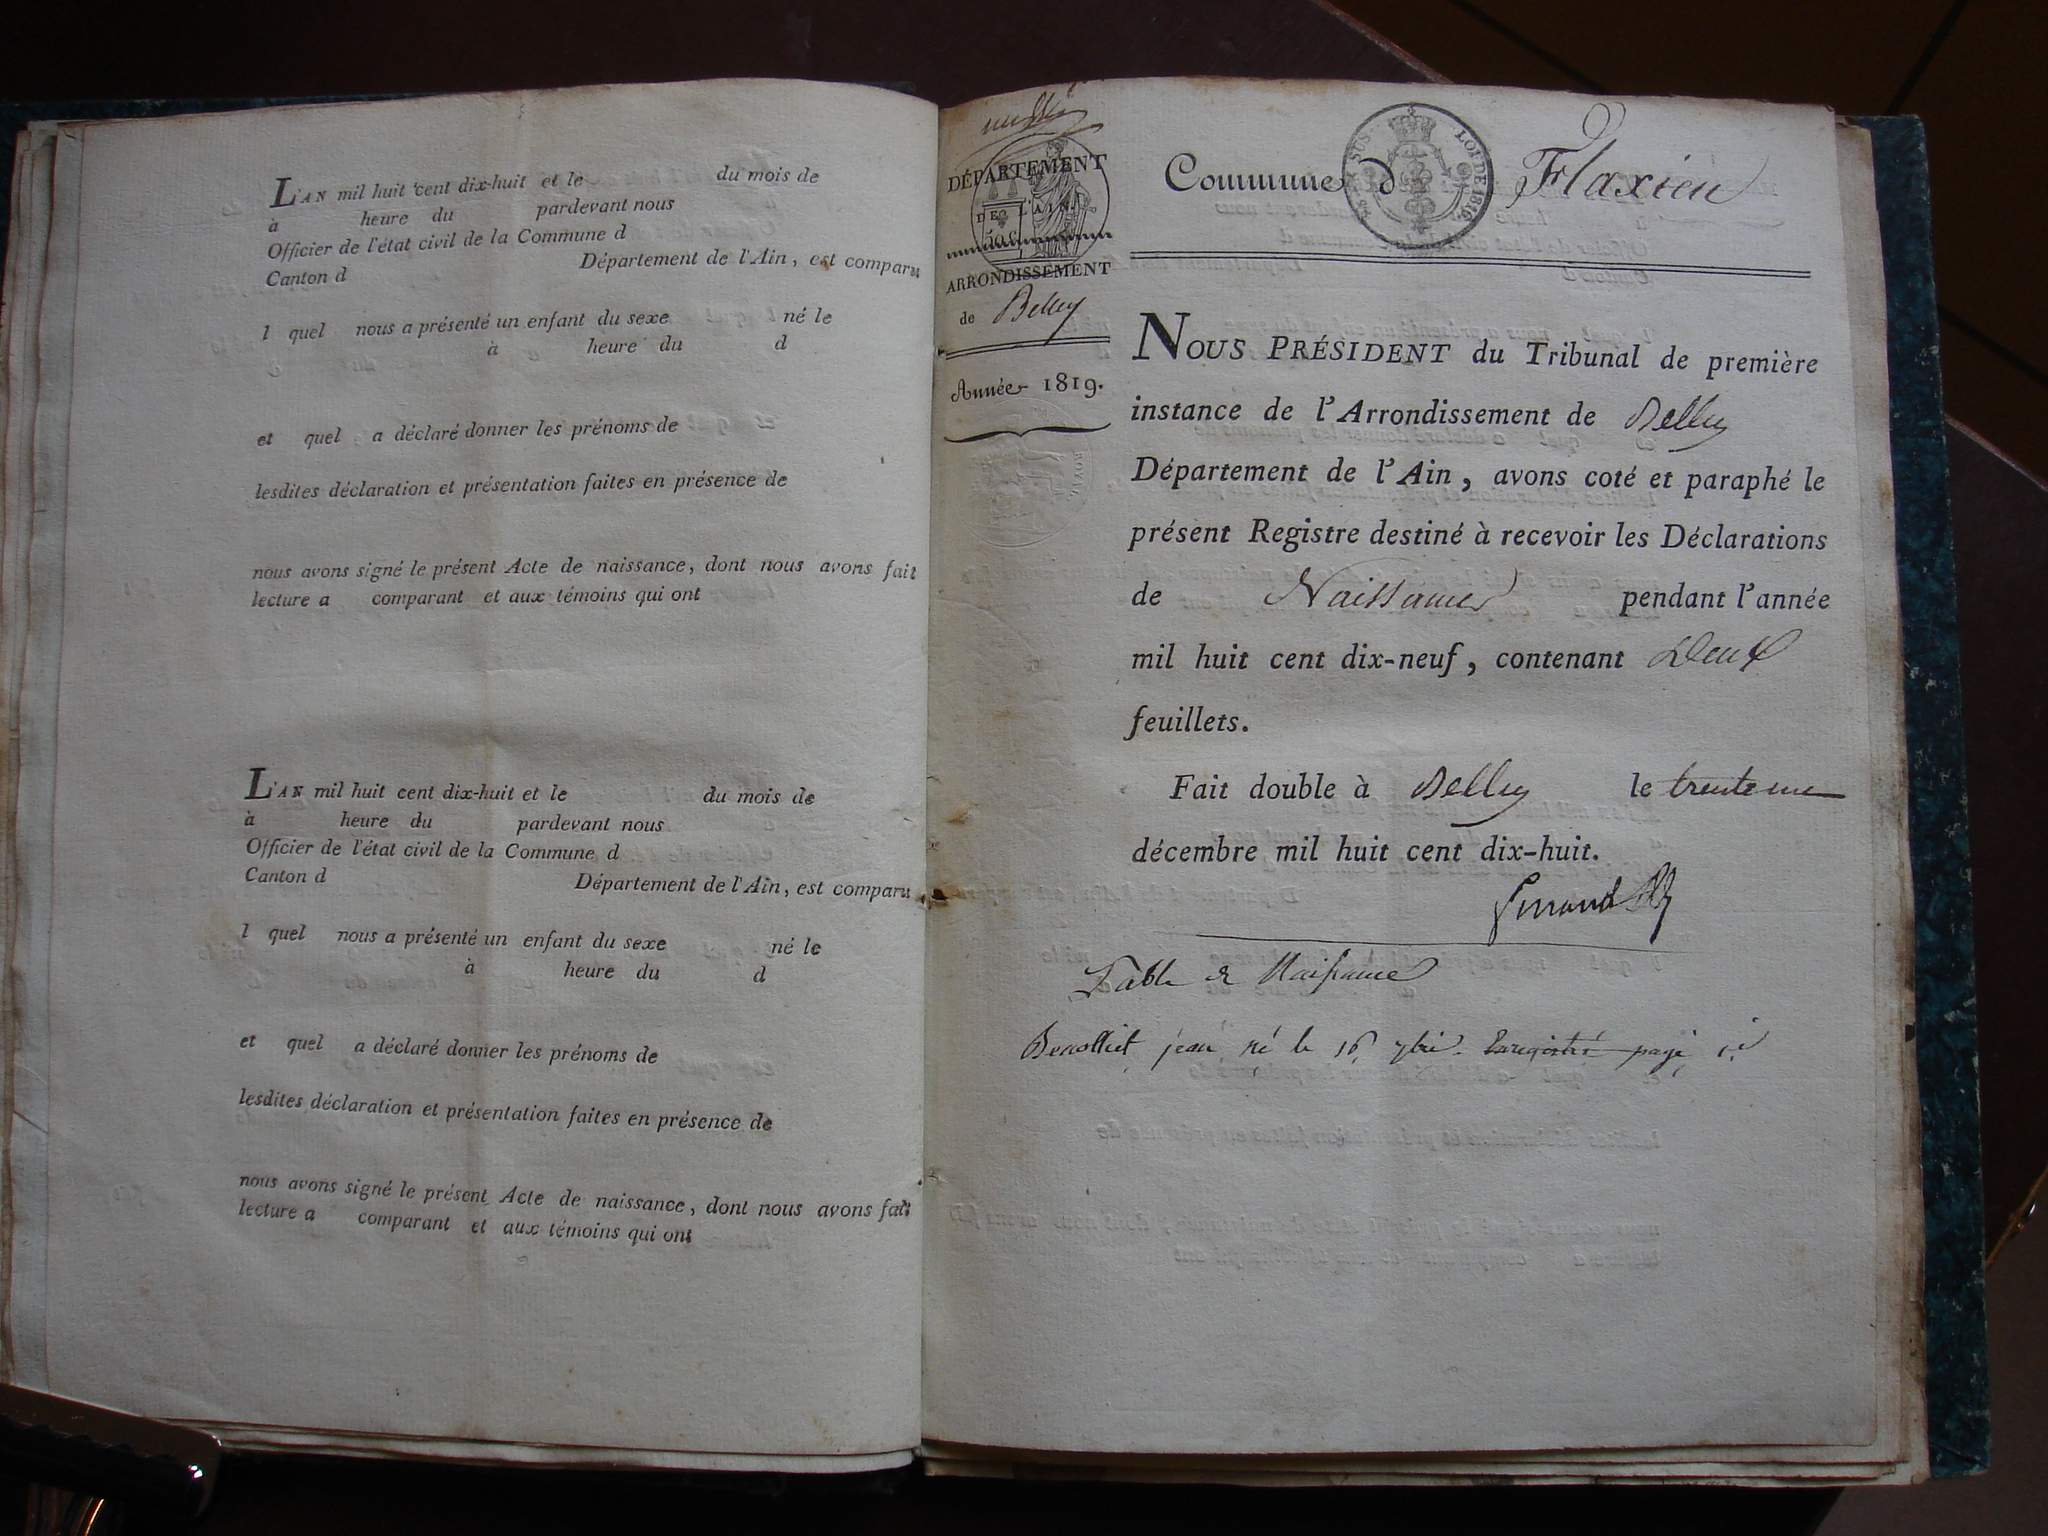 L'AN mil huit cent dix-huit et le du mois de
à heure du pardevant nous
Officier de l'état civil de la Commune d
Canton d Département de l'Ain, est comparu
l quel nous a présenté un enfant du sexe né le
à heure du d
et quel a déclaré donner les prénoms de
lesdites déclaration et présentation faites en présence de
nous avons signé le présent Acte de naissance, dont nous avons fait
lecture a comparant et aux témoins qui ont
L'AN mil huit cent dix-huit et le du mois de
à heure du pardevant nous
Officier de l'état civil de la Commune d
Canton d Département de l'Ain, est comparu
l quel nous a présenté un enfant du sexe né le
à heure du d
et quel a déclaré donner les prénoms de
lesdites déclaration et présentation faites en présence de
nous avons signé le présent Acte de naissance, dont nous avons fait
lecture a comparant et aux témoins qui ont
DÉPARTEMENT
DE L'AIN.
ARRONDISSEMENT
de Belley
Année 1819.
Commune d Flaxieu
SUS LOI DE 1816
NOUS PRÉSIDENT du Tribunal de première
instance de l'Arrondissement de Belley
Département de l'Ain, avons coté et paraphé le
présent Registre destiné à recevoir les Déclarations
de Naissances pendant l'année
mil huit cent dix-neuf, contenant Deux
feuillets.
Fait double à Belley le trente un
décembre mil huit cent dix-huit.
Table de Naissance
jean né le 16 7bre Enregistré page 1